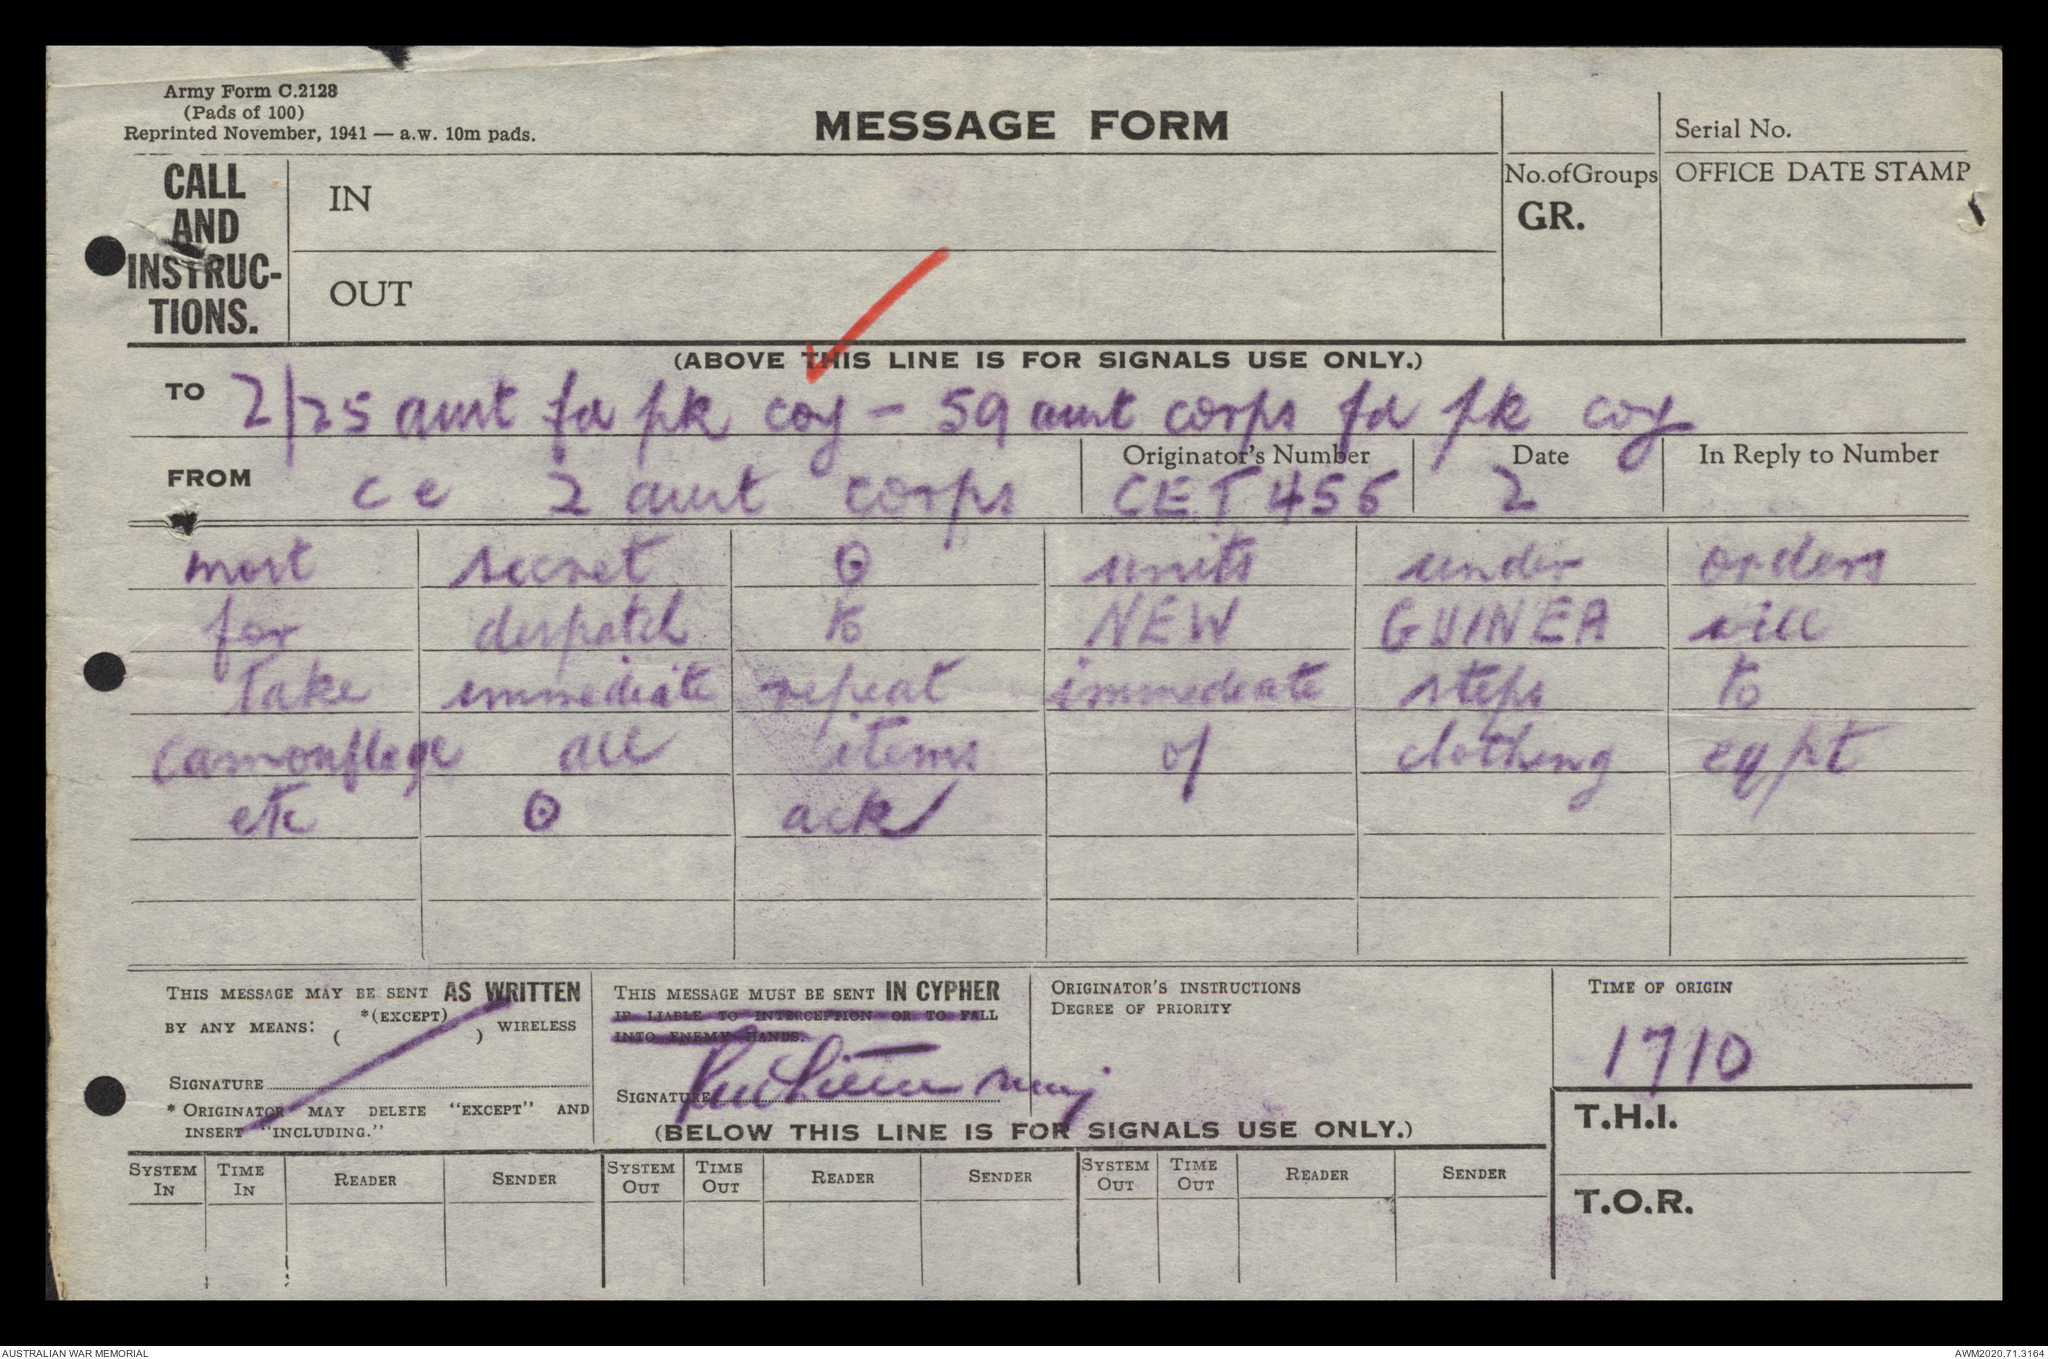 Army Form C.2128
(Pads of 100)
Reprinted November, 1941 — a.w. 10m pads.
MESSAGE FORM
Serial No.
CALL AND INSTRUC-TIONS.
IN
No. of Groups
GR.
OFFICE DATE STAMP
OUT
(ABOVE THIS LINE IS FOR SIGNALS USE ONLY.)
TO 2/25 aust fd pk coy – 59 aust corps fd pk coy
Originator's Number Date In Reply to Number
FROM ce 2 aust corps CET 456 2
most secret ⊙ units under orders
for despatch to NEW GUINEA will
take immediate repeat immediate steps to
camouflage all items of clothing eqpt
etc ⊙ ack
THIS MESSAGE MAY BE SENT AS WRITTEN
BY ANY MEANS: *(EXCEPT) ( ) WIRELESS
SIGNATURE
* ORIGINATOR MAY DELETE "EXCEPT" AND
INSERT "INCLUDING."
THIS MESSAGE MUST BE SENT IN CYPHER
IF LIABLE TO INTERCEPTION OR TO FALL
INTO ENEMY HANDS.
SIGNATURE maj
ORIGINATOR'S INSTRUCTIONS
DEGREE OF PRIORITY
TIME OF ORIGIN
1710
T.H.I.
T.O.R.
(BELOW THIS LINE IS FOR SIGNALS USE ONLY.)
SYSTEM IN TIME IN READER SENDER SYSTEM OUT TIME OUT READER SENDER SYSTEM OUT TIME OUT READER SENDER
AUSTRALIAN WAR MEMORIAL
AWM2020.71.3164